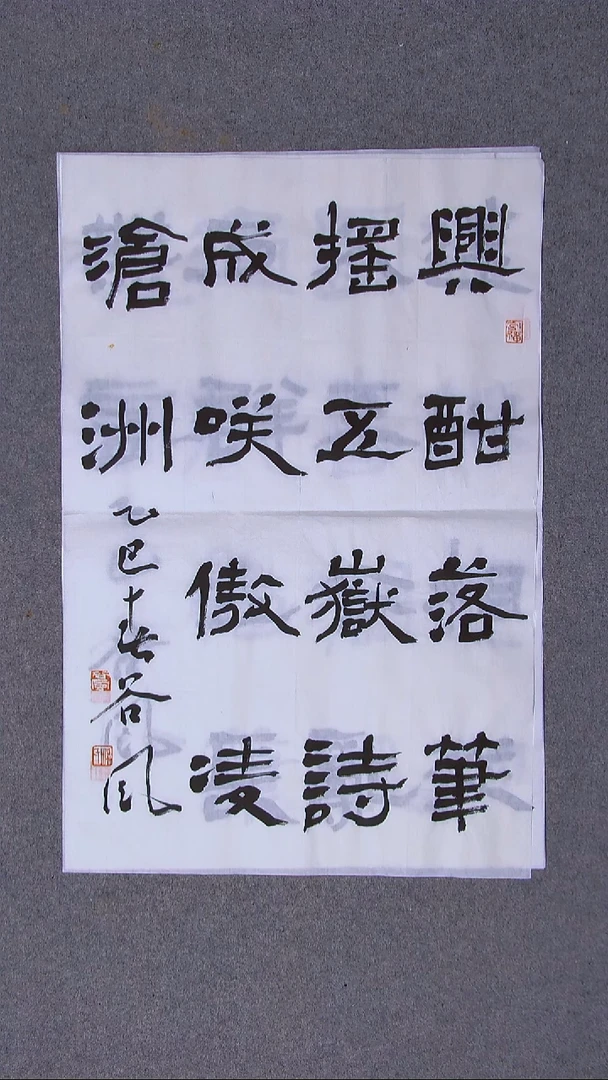 興酣落筆
搖五嶽詩
成咲傲凌
滄洲
乙巳十
谷風